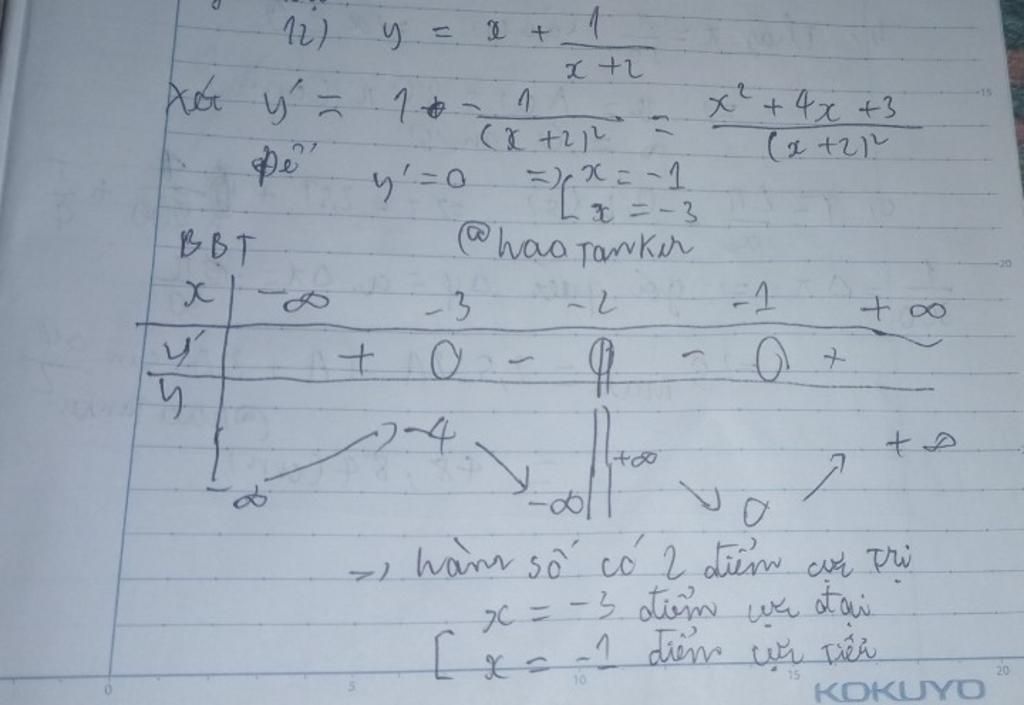 12) y = x + 1/(x+2)
Xét y' = 1 - 1/(x+2)² = (x² + 4x + 3)/(x+2)²
Để y' = 0 => [ x = -1
x = -3
BBT @haoTanker
x -∞ -3 -2 -1 +∞
y' + 0 - || - 0 +
y -∞ ↗ -4 ↘ -∞ || +∞ ↘ 0 ↗ +∞
=> hàm số có 2 điểm cực trị
[ x = -3 điểm cực đại
x = -1 điểm cực tiểu
0 5 10 15 20
15
20
KOKUYO